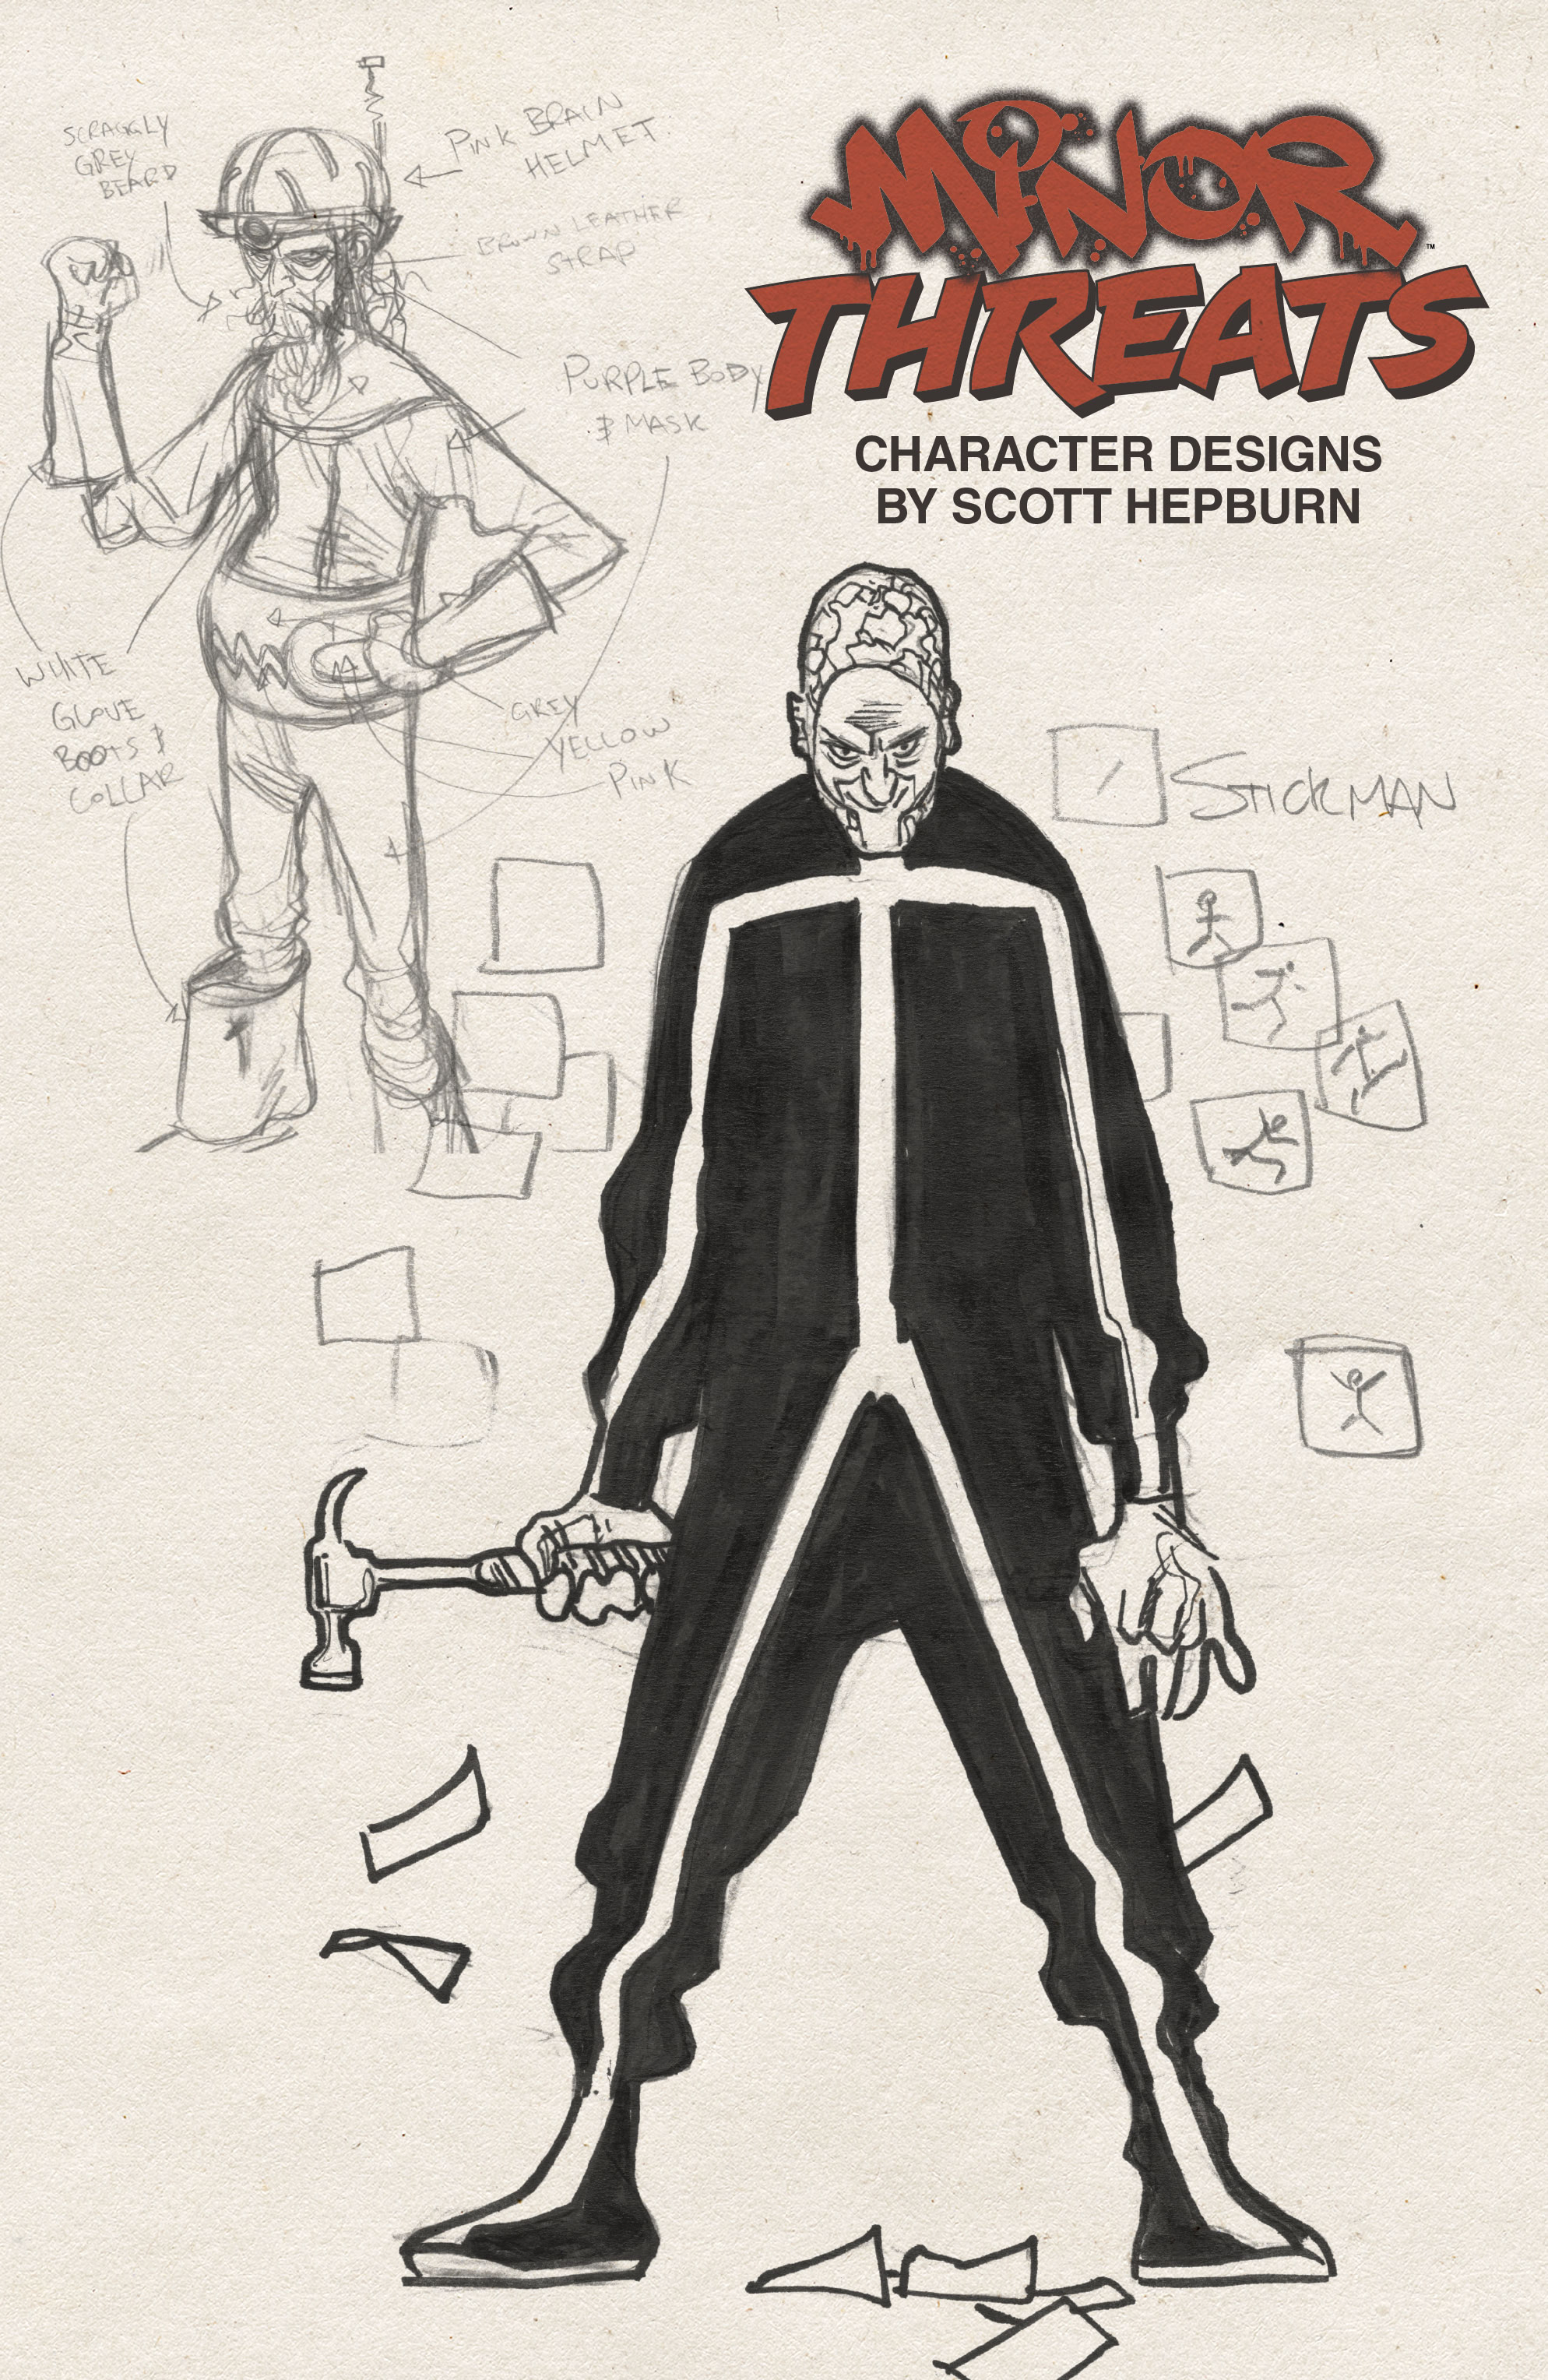 SCRAGGLY
GREY
BEARD
PINK BRAIN
HELMET
BROWN LEATHER
STRAP
PURPLE BODY
& MASK
WHITE
GLOVE
BOOTS &
COLLAR
GREY
YELLOW
PINK
MINOR
THREATS
TM
CHARACTER DESIGNS
BY SCOTT HEPBURN
STICKMAN